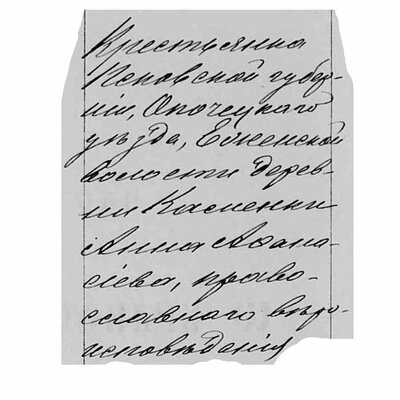 Крестьянка
Псковской губер-
нiи, Опочецкаго
уѣзда, Еженской
волости дерев-
ни Каменки
Анна Афана-
сiева, право-
славнаго вѣро-
исповѣданiя